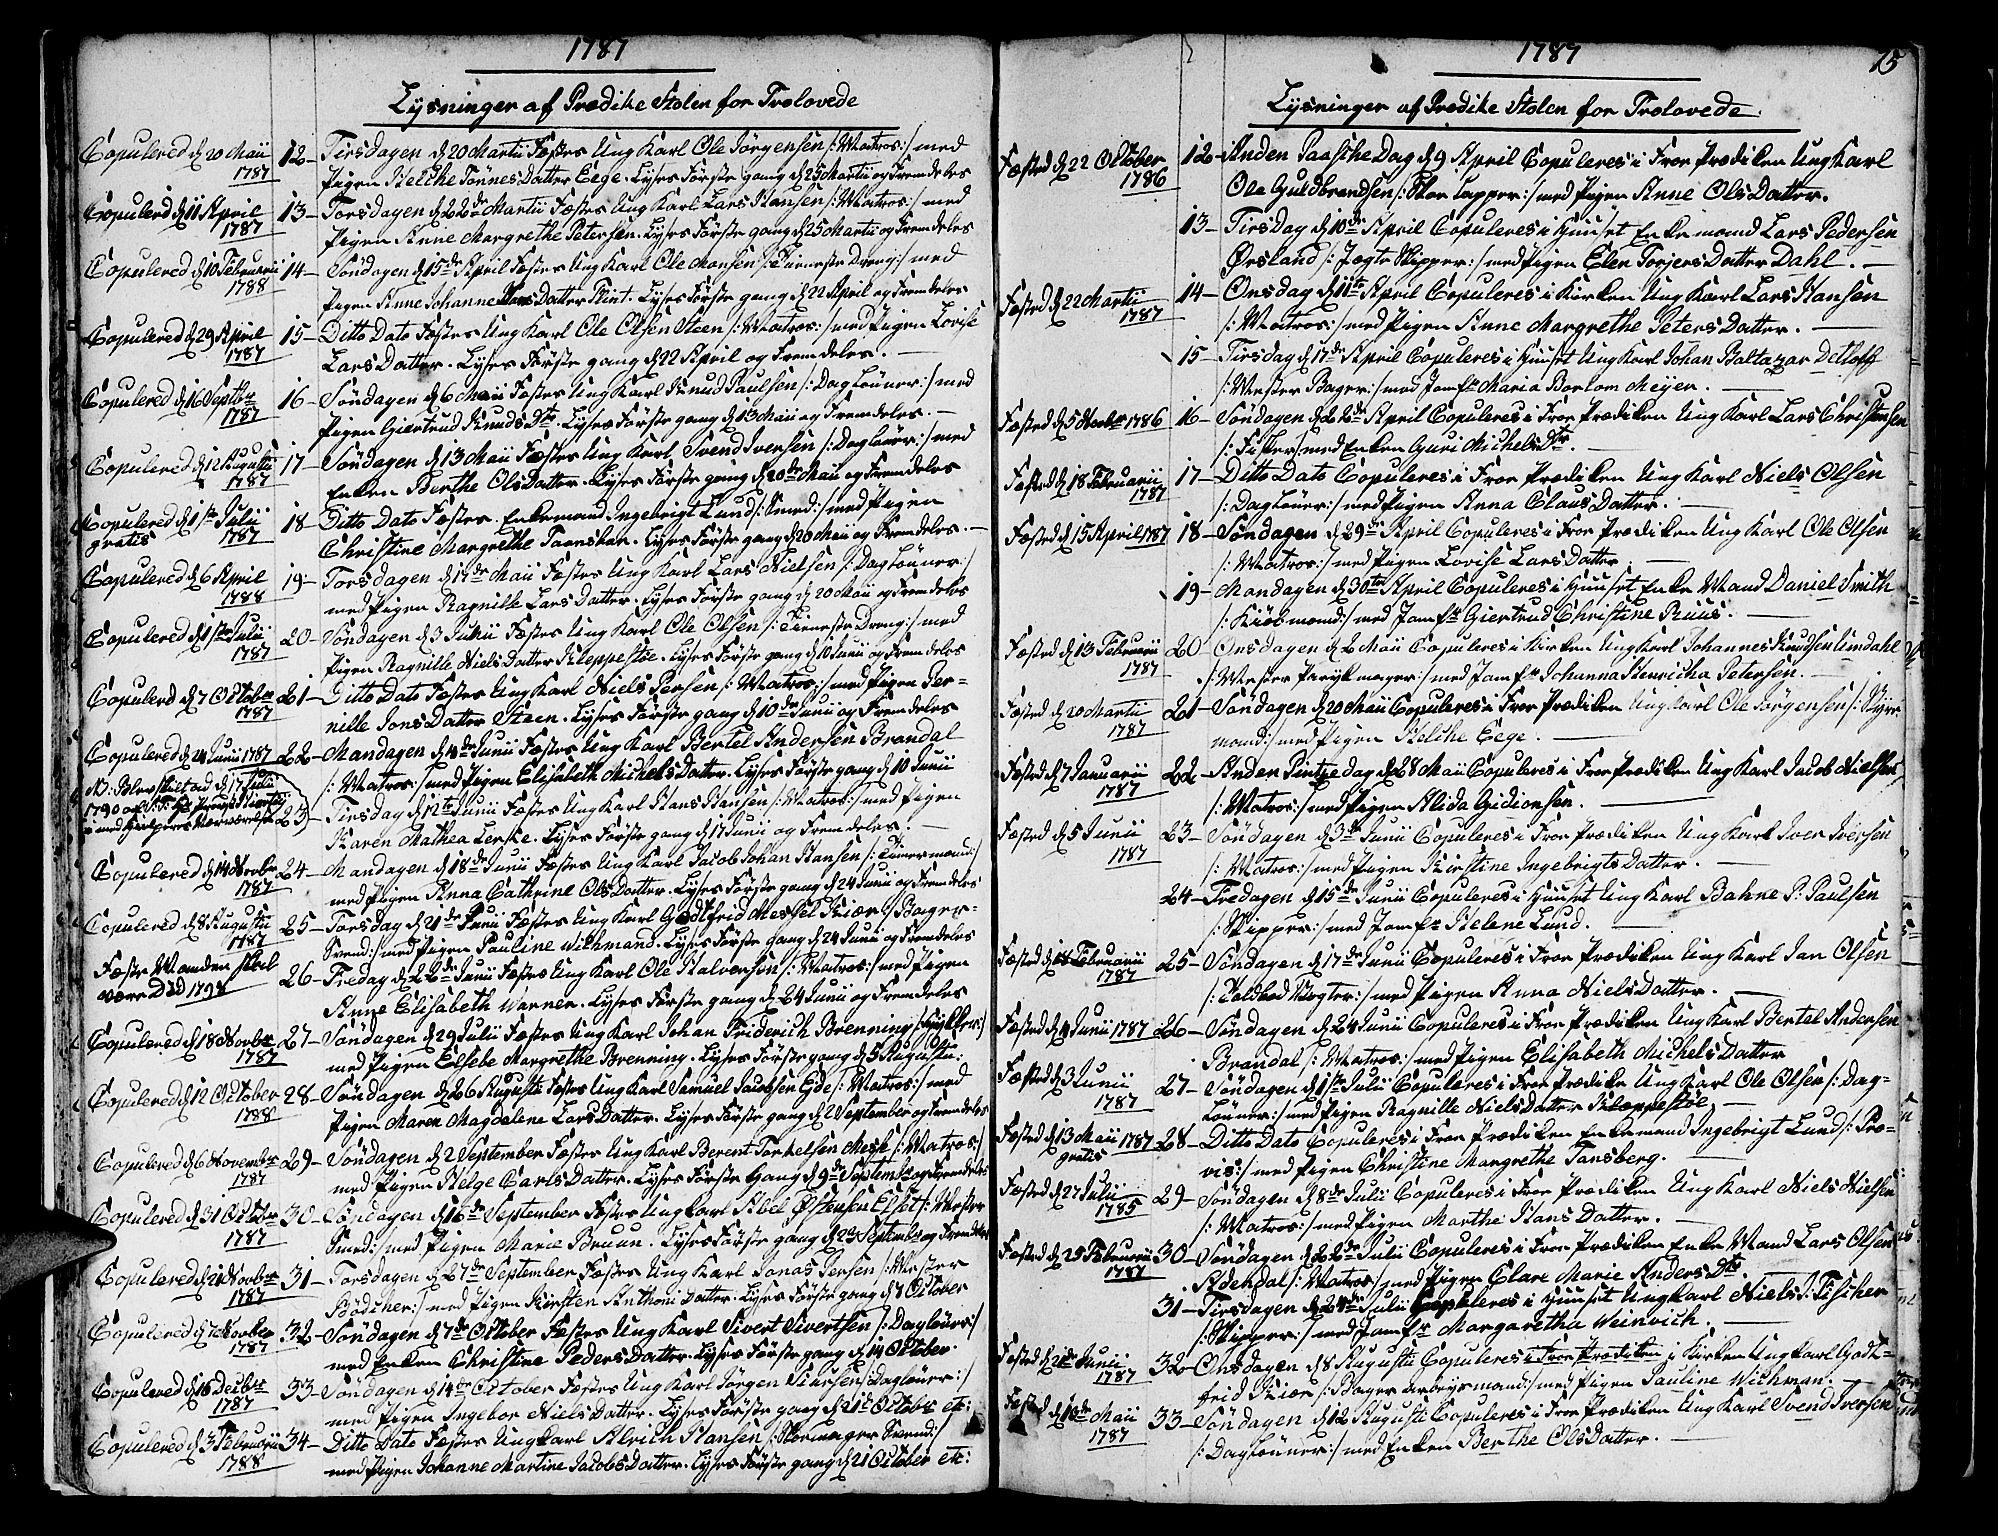 1787
Lysninger af Prædike Stolen for Trolovede
Copulered d 20 Maii 1787
12- Tirsdagen d 20 Martii Fæstes Ung Karl Ole Jörgensen /: Matros:/ med
Pigen Helche Tönnes Datter Eege. Lyses Förste gang d 25 Martii og Fremdeles
Copulerd d 11 April 1787
13- Torsdagen d 22de Martii Fæstes Ung Karl Lars Hansen /: Matros:/ med
Pigen Anne Margrethe Petersen. Lyses Förste gang d 25 Martii og Fremdeles
Copulered d 10 Februarii 1788
14- Söndagen d 15de April Fæstes Ung Karl Ole Monsen /: Tieneste Dreng:/ med
Pigen Anne Johanne Datter Flint. Lyses Förste gang d 22 April og Fremdeles
Copulered d 29 April 1787
15- Ditto Dato Fæstes Ung Karl Ole Olsen Steen /: Matros:/ med Pigen Lovise
Lars Datter. Lyses Förste gang d 22 April og Fremdeles.
Copulered d 16 Septbr 1787
16- Söndagen d 6 Maii Fæstes Ung Karl Knud Paulsen /: Dag Löuner:/ med
Pigen Giertrud Knuds Dtr. Lyses Förste gang d 13 Maii og Fremdeles.
Copulered d 12 Augusti 1787
17- Söndagen d 13 Maii Fæstes Ung Karl Svend Iversen /: Dag Löuer:/ med
Enken Berthe Ols Datter. Lyses Förste gang d 20de Maii og Fremdeles
Copulered d 1ste Julii gratis 1787
18- Ditto Dato Fæstes. Enkemand Ingebrigt Lund /: Smed:/ med Pigen
Christine Margrethe Taansbar. Lyses Förste gang d 20 Maii og Fremdeles.
Copulered d 6 April 1788
19- Torsdagen d 17de Maii Fæstes Ung Karl Lars Nielsen /: Dag Löuner:/
med Pigen Ragnille Lars Datter. Lyses Förste gang d 20 Maii og Fremdeles
Copulered d 1ste Julii 1787
20- Söndagen d 3 Junii Fæstes Ung Karl Ole Olsen /: Tieneste Dreng:/ med
Pigen Ragnille Niels Datter Kleppestöe. Lyses Förste gang d 10 Junii og Fremdeles
Copulerd d 7 October 1787
21- Ditto Dato Fæstes Ung Karl Niels Persen /: Matros:/ med Pigen Per-
nille Jons Datter Steen. Lyses Förste gang d 10de Junii og Fremdeles
Copulered d 24 Junii 1787
22- Mandagen d 4de Junii Fæstes Ung Karl Bertel Andersen Brandal
/: Matros:/ med Pigen Elisabeth Michels Datter. Lyses Förste gang d 10 Junii
23) Tirsdag d 12te Junii Fæstes Ung Karl Hans Hansen /: Matros:/ med Pigen
Karen Mathea Lerske. Lyses Förste gang d 17 Junii og Fremdeles.
Copulered d 14 Novbr 1787
24- Mandagen d 18de Junii Fæstes Ung Karl Jacob Johan Hansen /: Timermand:/
med Pigen Anna Cathrine Ols Datter. Lyses Förste gang d 24 Junii og Fremdeles
Copulered d 8 Augusti 1787
25- Torsdag d 21de Junii Fæstes Ung Karl Godtfrid Messel Kiær /: Bager-
Svend:/ med Pigen Pauline Wichmand. Lyses Förste gang d 24 Junii og Fremdeles
Fæste Manden skal være Död 1798
26- Fredag d 22de Junii Fæstes Ung Karl Ole Halvorsön /: Matros:/ med Pigen
Anne Elisabeth Warner. Lyses Förste gang d 24 Junii og Fremdeles
Copulered d 18 Novbr 1787
27- Söndagen d 29 Julii Fæstes Ung Karl Johan Friderich Brenning /: :/
med Pigen Elsebe Margrethe Brenning. Lyses Förste gang d 5 Augusti:
Copulered d 12 October 1788
28- Söndagen d 26 Augusti Fæstes Ung Karl Samuel Jacobsen Egde /: Matros:/ med
Pigen Maren Magdalene Lars Datter. Lyses Förste gang d 2 September og Fremdeles
Copulered d 6 November 1787
29- Söndagen d 2 September Fæstes Ung Karl Berent Torkelsen Mesk /: Matros:/
med Pigen Helge Carls Datter. Lyses Förste Gang d 9de Septembr og Fremdeles
Copulered d 31 Octobr 1787
30- Söndagen d 16de September Fæstes Ung Karl Abel Östensen Elset /: Mester
Smed:/ med Pigen Marie Bruun. Lyses Förste gang d 23 Septembr og Fremdeles
Copulered d 21 Novbr 1787
31- Torsdagen d 27de September Fæstes Ung Karl Jonas Jersen /: Mester
Bödcher:/ med Pigen Kirsten Anthoni Datter. Lyses Förste gang d 7 October
Copulered d 7 Novbr 1787
32- Söndagen d 7de October Fæstes Ung Karl Sivert Sivertsen /: Daglöner:/
med Enken Christine Peders Datter. Lyses Förste gang d 14 October.
Copulered d 16 Decbr 1787
33- Söndagen d 14de October Fæstes Ung Karl Jörgen Siursen /: Daglöner:/
med Pigen Ingebor Niels Datter. Lyses Förste gang d 21de Octobr etc:
Copulered d 3 Februarii 1788
34- Ditto Dato Fæstes Ung Karl Alrich Hansen /: Skomager Svend:/
med Pigen Johanne Martine Jacobs Datter. Lyses Förste gang d 21 October etc:
1787
15
Lysninger af Prædike Stolen for Trolovede.
Fæsted d 22 October 1786
12- Anden Paasche Dag d 9 April Copuleres i Froe Prædiken Ung Karl
Ole Guldbrandsen /: Skoe Lapper:/ med Pigen Anne Ols Datter.
13- Tirsdag d 10de April Copuleres i Huuset Enkemand Lars Pedersen
Örsland /: Jægte Skipper:/ med Pigen Elen Torjers Datter Dahl.
Fæsted d 22 Martii 1787
14- Onsdag d 11te April Copuleres i Kirken Ung Karl Lars Hansen
/: Matros:/ med Pigen Anne Margrethe Peters Datter.
15- Tirsdag d 17de April Copuleres i Huuset Ung Karl Johan Baltazar Detloff
/: Mester Bager:/ med Jomfr Maria Borlom Meyer.
Fæsted d 5 Novbr 1786
16- Söndagen d 22de April Copuleres i Froe Prædiken Ung Karl Lars Christensen
/: Fisker:/ med Enken Guri Michels Dtr.
Fæsted d 18 Februarii 1787
17- Ditto Dato Copuleres i Froe Prædiken Ung Karl Niels Olsen
/: Dag Löuner:/ med Pigen Anna Claus Datter.
Fæsted d 15 April 1787
18- Söndagen d 29de April Copuleres i Froe Prædiken Ung Karl Ole Olsen
/: Matros:/ med Pigen Lovise Lars Datter
19- Mandagen d 30te April Copuleres i Huuset Enke Mand Daniel Smith
/: Kiöbmand:/ med Jomfr Giertrud Christine Ruus.
Fæsted d 13 Februarii 1787
20 Onsdagen d 2 Maii Copuleres i Kirken Ung Karl Johannes Knudsen Umdahl
/: Mester Parykmager:/ med Jomfr Johanna Henricha Petersen.
Fæsted d 20 Martii 1787
21- Söndagen d 20 Maii Copuleres i Froe Prædiken Ung Karl Ole Jörgensen /: Styr
mand:/ med Pigen Helche Eege.
Fæsted d 7 Januarii 1787
22- Anden Pintze dag d 28 Maii Copuleres i Froe Prædiken Ung Karl Jacob Nielsen
/: Matros:/ med Pigen Alida Gidionsen.
Fæsted d 5 Junii 1787
23- Söndagen d 3de Junii Copuleres i Froe Prædiken Ung Karl Iver Iversen
/: Matros:/ med Pigen Kirstine Ingebrigts Datter.
24- Fredagen d 15de Junii Copuleres i Huuset Ung Karl Bahne P. Paulsen
/: Skipper:/ med Jomfr Helene Lund.
Fæsted d 18 Februarii 1787
25- Söndagen d 17de Junii Copuleres i Froe Prædiken Ung Karl Jan Olsen
/: Toldbod Vogter:/ med Pigen Anna Niels Datter.
Fæsted d 4 Junii 1787
26- Söndagen d 24 Junii Copuleres i Froe Prædiken Ung Karl Bertel Andersen
Brandal /: Matros:/ med Pigen Elisabeth Michels Datter
Fæsted d 3 Junii 1787
27- Söndagen d 1ste Julii Copuleres i Froe Prædiken Ung Karl Ole Olsen /: Dag-
Löuner:/ med Pigen Ragnille Niels Datter Klæppestöe
Fæsted d 13 Maii 1787 gratis
28- Ditto Dato Copuleres i Froe Prædiken Enkemand Ingebrigt Lund /: Pro-
vis:/ med Pigen Christine Margrethe Tansberg.
Fæsted d 27 Julii 1785
29- Söndagen d 8de Julii Copuleres i Froe Prædiken Ung Karl Niels Nielsen
/: Matros:/ med Pigen Marthe Hans Datter.
Fæsted d 25 Februarii 1787
30- Söndagen d 22de Julii Copuleres i Froe Prædiken Enke Mand Lars Olsen
Adendal /: Matros:/ med Pigen Clare Marie Anders Dtr.
31- Tirsdagen d 24de Julii Copuleres i Huuset Ung Karl Niels J: Fischer
/: Skipper:/ med Jomfr Margaretha Weinvich.
Fæsted d 21de Junii 1787
32- Onsdagen d 8 Augusti Copuleres i Froe Prædiken i Kirken Ung Karl Godt-
frid Kiær /: Bager :/ med Pigen Pauline Wichman.
Fæsted d 13de Maii 1787
33- Söndagen d 12 Augusti Copuleres i Froe Prædiken Ung Karl Svend Iversen
/: Dag Löuner:/ med Enken Berthe Ols Datter.